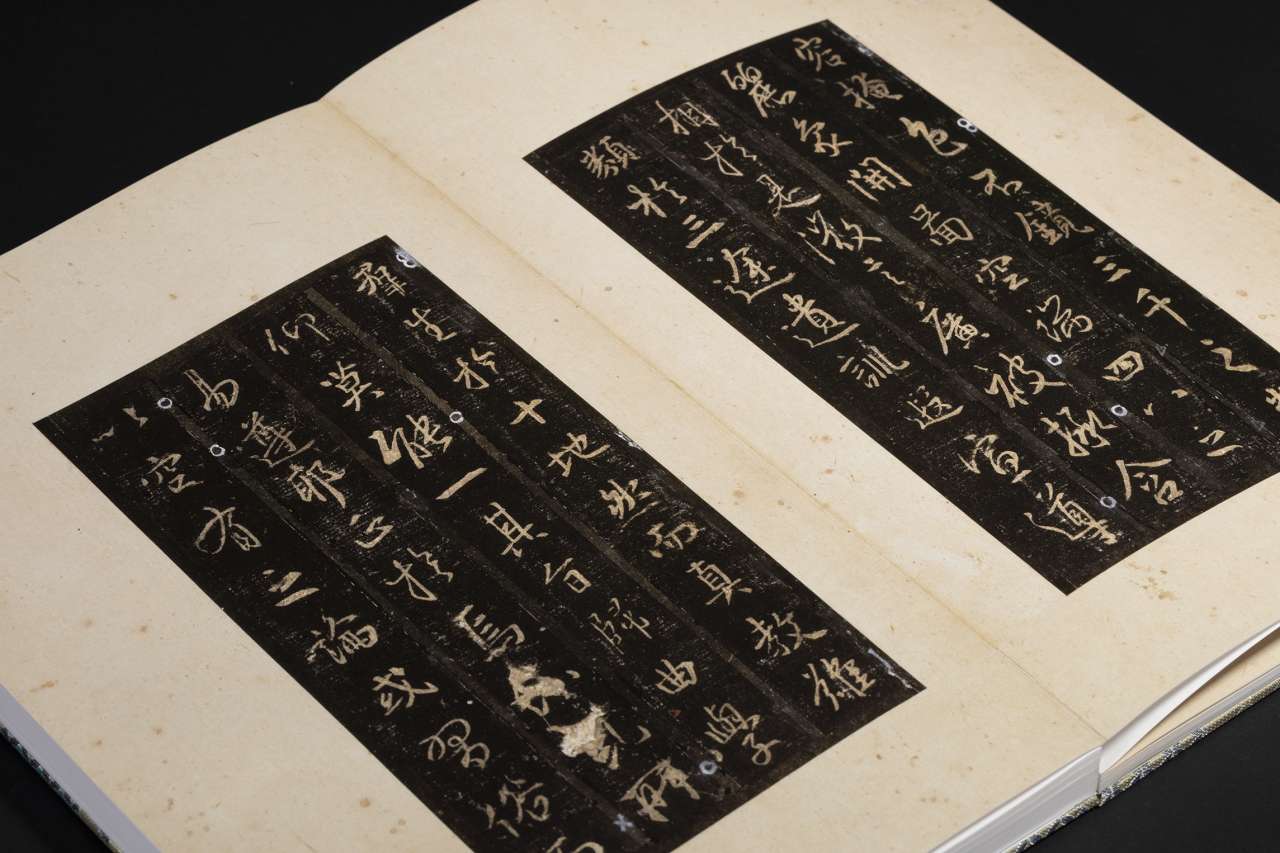 容掩色不鏡三千之
麗象開圖空端四八之
相於是微言廣被拯含
類於三途遺訓遐宣導
羣生於十地然而真教難
仰莫能一其旨歸曲學
易遵耶正於焉糺所
以空有之論或習俗而